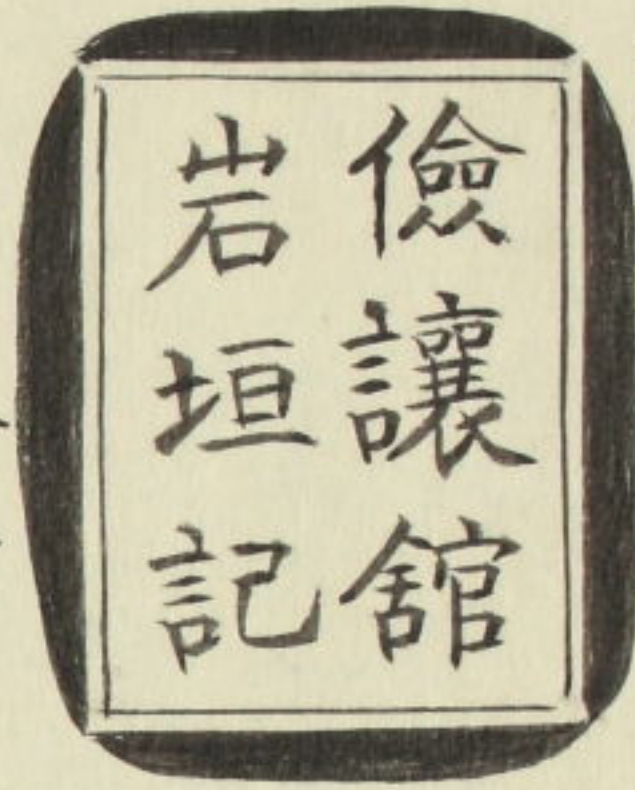 儉讓舘
岩垣記